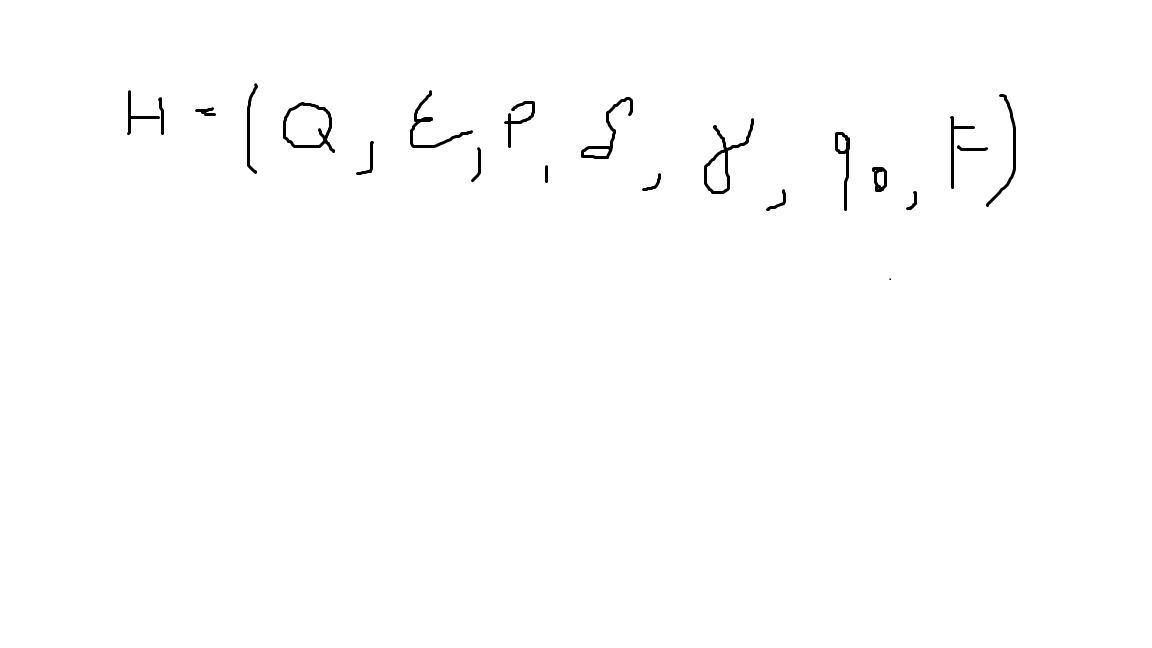 H = (Q, Ɛ, P, δ, γ, q₀, F)